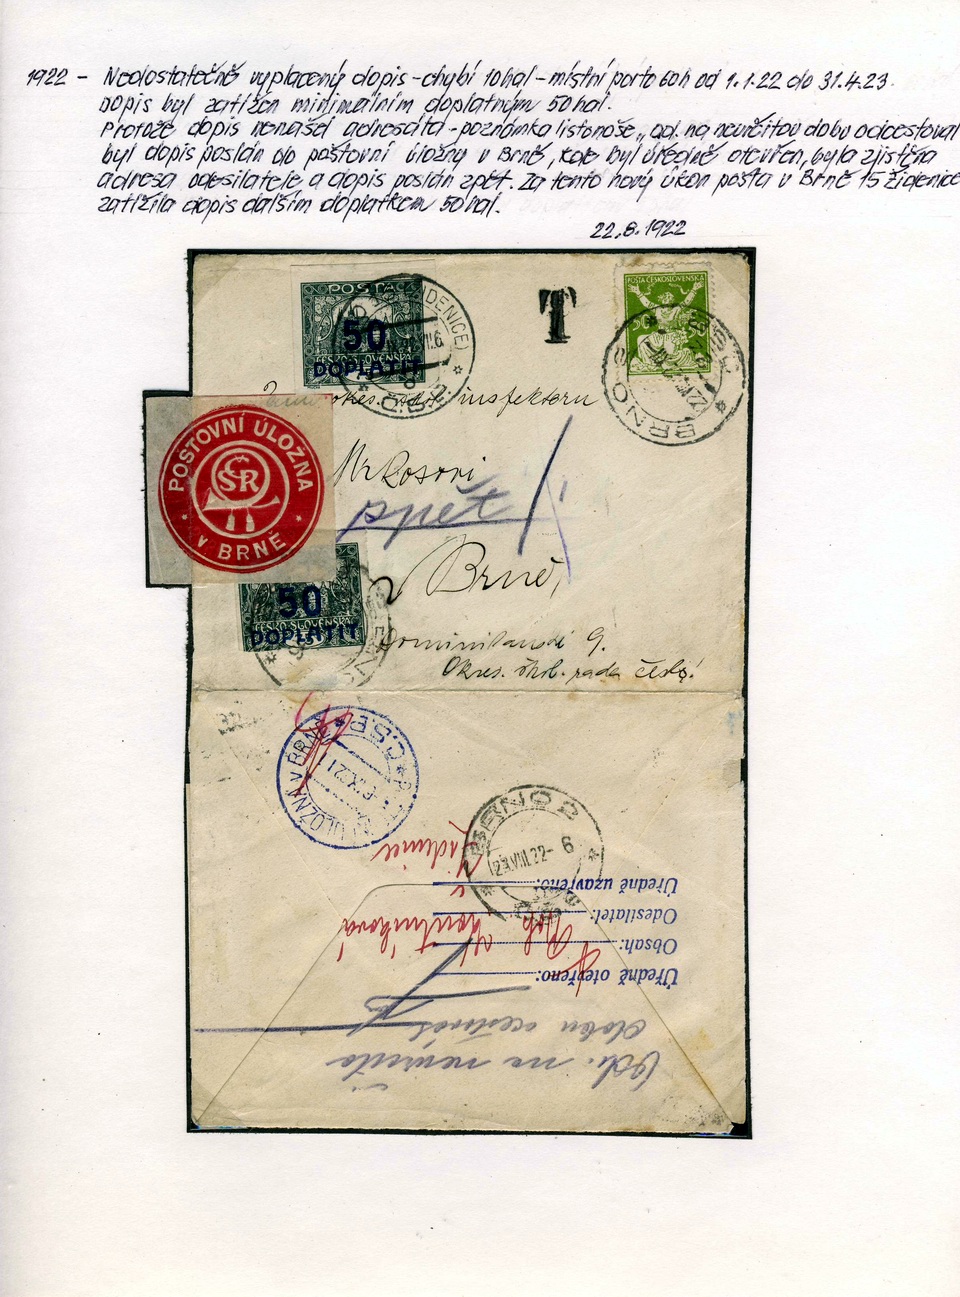 1922 - Nedostatečně vyplacený dopis - chybí 10hal - místní porto 60h od 1.1.22 do 31.4.23.
Dopis byl zatížen minimálním doplatným 50 hal.
Protože dopis nenašel adresáta - poznámka listonoše „odj. na neurčitou dobu odcestoval
byl dopis poslán do poštovní úložny v Brně, kde byl úředně otevřen, byla zjištěna
adresa odesilatele a dopis poslán zpět. Za tento nový úkon pošta v Brně 15 Židenice
zatížila dopis dalším doplatkem 50 hal.
22.8.1922
POŠTA
50
DOPLATIT
ČESKO-SLOVENSKÁ
ŽIDENICE)
Č.S.P.
T
POŠTA ČESKOSLOVENSKÁ
50
BRNO 2
Č.S.P.
inspektoru
Mrkosovi
zpět
Brně,
POŠTOVNÍ ÚLOŽNA
ČSR
v BRNĚ
50
DOPLATIT
ČESKO-SLOVENSKÁ
Dominikanské 9.
Okres. škol. rada česká!
ÚLOŽNA V BRNĚ
Č.S.P.
BRNO 2
23.VIII.22- 6
Židenice
Úředně uzavřeno:
Odesilatel:
Obsah:
Úředně otevřeno:
dobu
na neurčito